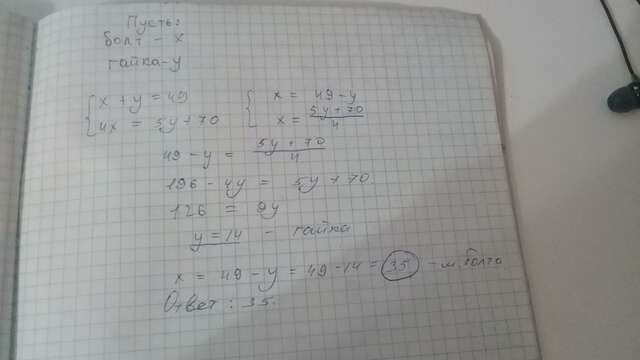 Пусть:
болт - x
гайка - y
{x + y = 49
4x = 5y + 70
{x = 49 - y
x = 5y + 70 / 4
49 - y = 5y + 70 / 4
196 - 4y = 5y + 70
126 = 9y
y = 14 - гайка
x = 49 - y = 49 - 14 = 35 - м. болта
Ответ: 35.